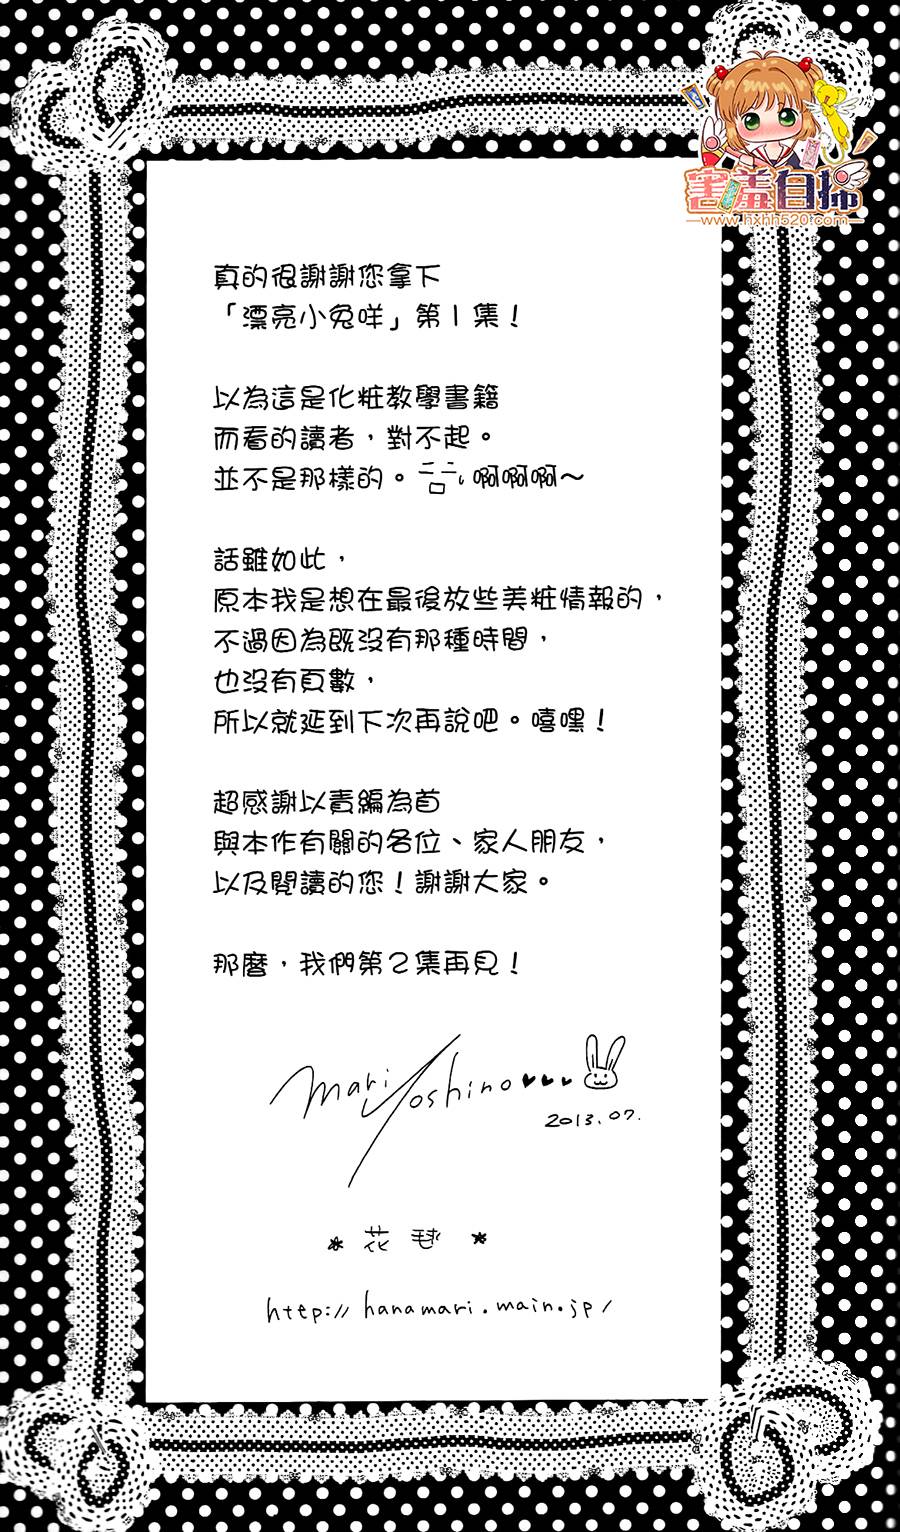 害羞自掃
www.hxhh520.com
真的很謝謝您拿下
「漂亮小兔咩」第1集!
以為這是化粧教學書籍
而看的讀者,對不起。
並不是那樣的。啊啊啊~
話雖如此,
原本我是想在最後放些美粧情報的,
不過因為既沒有那種時間,
也沒有頁數,
所以就延到下次再說吧。嘻嘿!
超感謝以責編為首
與本作有關的各位、家人朋友,
以及閱讀的您!謝謝大家。
那麼,我們第2集再見!
Mari Yoshino♥♥♥
2013.07.
* 花毬 *
http://hanamari.main.jp/